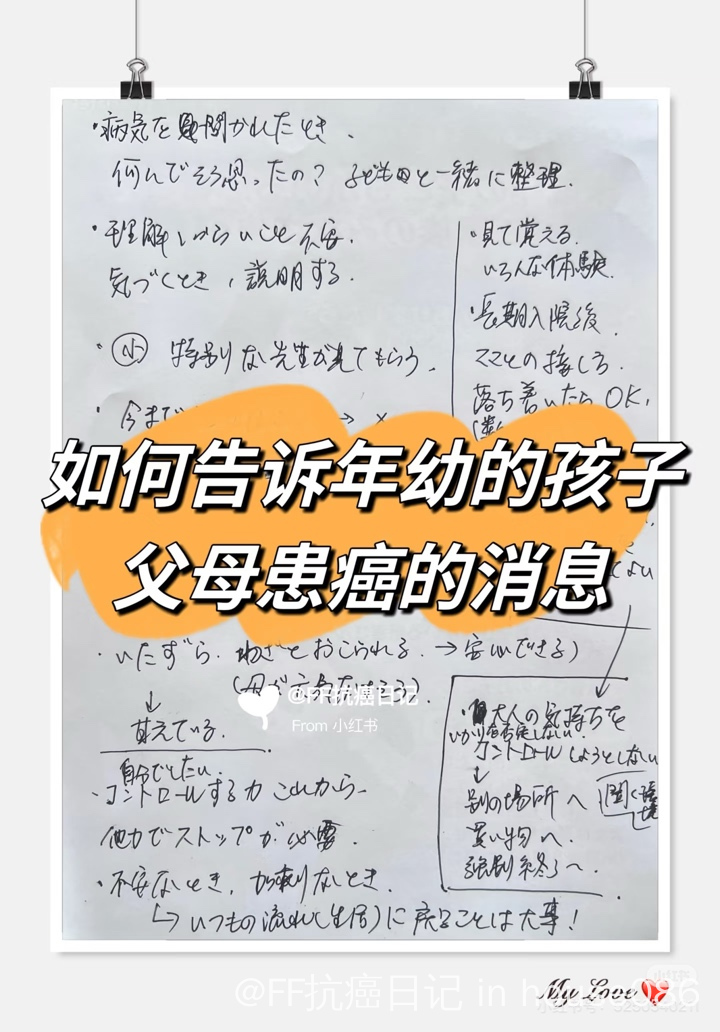 ・病気を聞かれたとき、
何んでそう思ったの？子ども目と一緒に整理.
・理解しづらいこと不安.
気づくとき，説明する.
・小 特別な先生が見てもらう.
・今まで → ×
・見て覚える.
いろんな体験.
・長期入院後.
ママとの接しろ.
落ち着いたらOK,
如何告诉年幼的孩子
父母患癌的消息
ない
・いたずら.わざとおこられる.→安心できる)
↓
甘えている.
自分でしたい.
・コントロールする力 これから
他力でストップが必要.
・不安なとき,
↳いつもの流れ(生活)に戻ることは大事!
・大人の気持ちを
コントロールしようとしない
↓
別の場所へ
買い物へ.
強制終了へ.
@FF抗癌日记
From 小红书
My Love
@FF抗癌日记 in house086